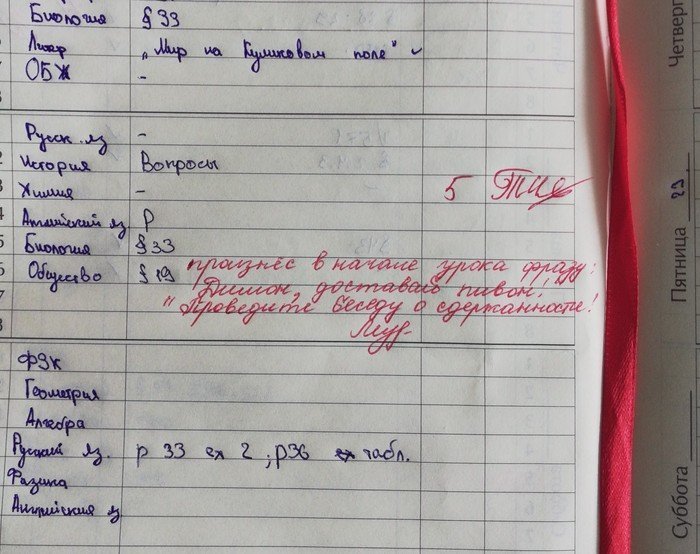 Биология § 33
Литер „Мир на Куликовом поле"
ОБЖ -
Русск. яз -
История Вопросы
Химия - 5
Английский яз P
Биология § 33
Общество § 19
произнёс в начале урока фразу:
"Димон, доставай пивон!"
Проведите беседу о сдержанности!
ФЗК
Геометрия
Алгебра
Русский яз. р 33 ех 2 ; р36 ех табл.
Физика
Английский яз
Четверг
Пятница 29
Суббота